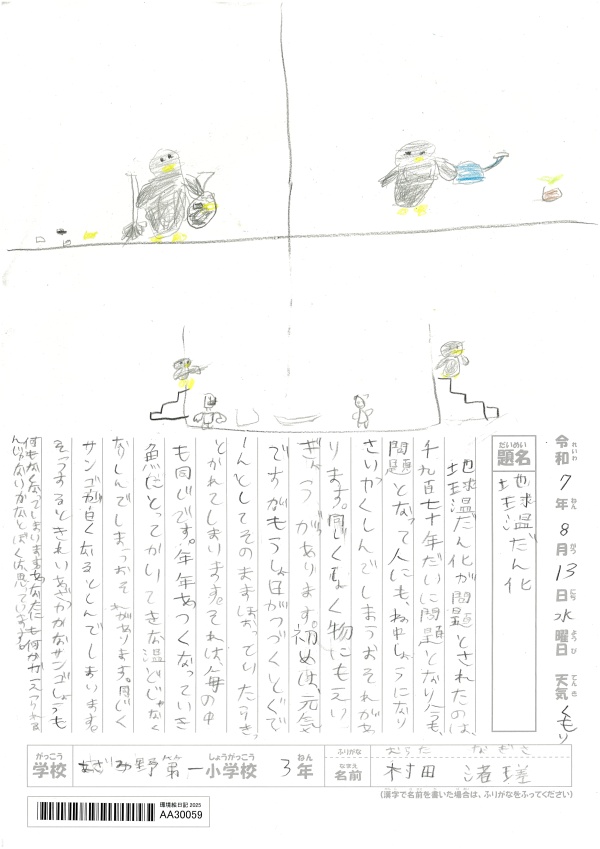 令和7年8月13日水曜日 天気くもり
れいわ ねん がつ にち ようび てんき
題名 地球温だん化
だいめい
地球温だん化が問題とされたのは、
千九百七十年だいに問題となり今も、
問題となって人にも、ね中しょうになり
さいやくしんでしまうおそれがあ
ります。同じく動く物にもえい
きょうがあります。初めは、元気
ですがもうしょ日がつづくとぐで
ーんとしてそのままほおっていたらきっ
とかれてしまいます。それは、海の中
も同じです。年年あつくなっていき
魚にとってかいてきな温どじゃなく
なりしんでしまうおそれがあります。同じく
サンゴが白くなるとしんでしまいます。
そうするときれいであざやかなサンゴしょうも
何もなくなってしまいます。あなたにも何かが
んじゃないかなとぼくは思っています。
学校 あざみ野第一小学校 3年
がっこう しょうがっこう ねん
ふりがな むらた なぎさ
名前 村田 渚瑳
なまえ
(漢字で名前を書いた場合は、ふりがなをふってください)
環境絵日記 2025
AA30059